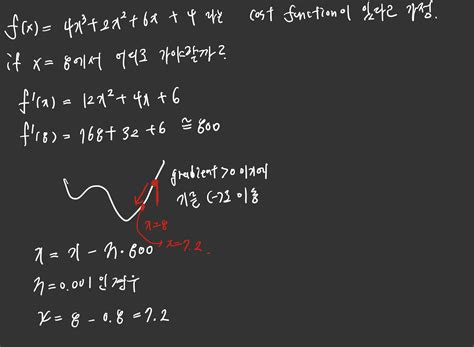 f(x) = 4x³+2x²+6x + 4 라는 cost function이 있다고 가정.
if x = 8에서 어디로 가야할까?
f'(x) = 12x²+4x+6
f'(8) = 768+32+6 ≅ 800
gradient >0 이기에
기울 (-)로 이동
x=8
x=7.2.
x = x - η·800
η=0.001 인 경우
x = 8 - 0.8 = 7.2